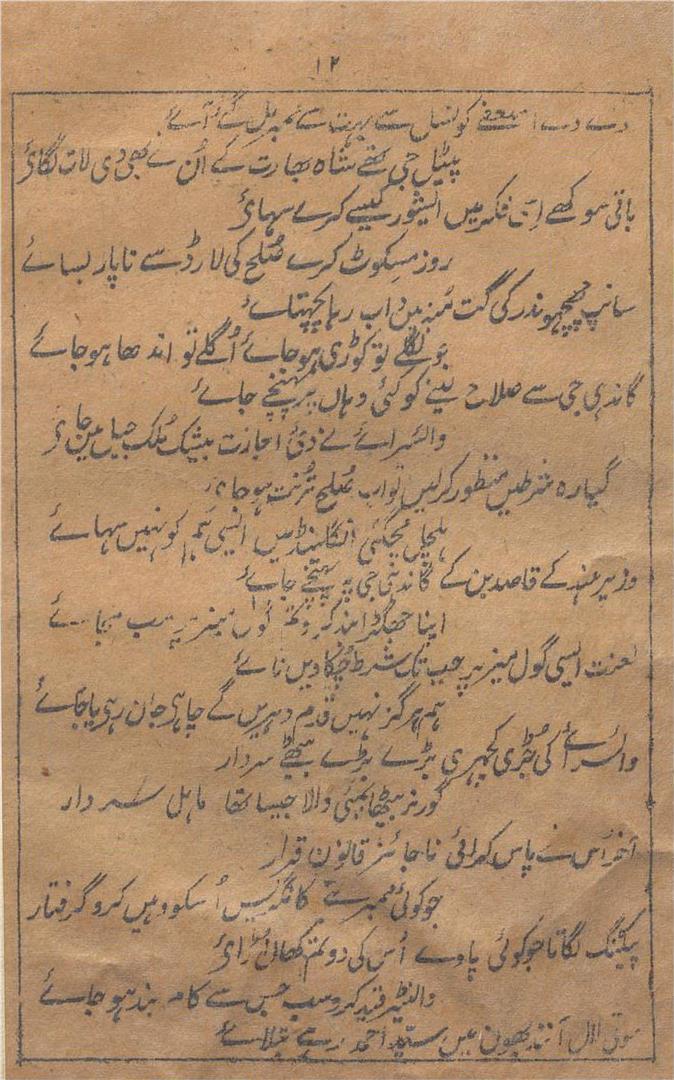 ۱۲
دے دے استعفے کونسل سے بہت سے ممبر نل کے آئے
پٹیل جی تھے شاہ بھارت کے اُن نے بھی دی لات لگائ
باقی سوکھے اِس فکر میں ایشور کیسے کرے سہائ
روز مسکوٹ کرے صُلح کی لارڈ سے ناپار بسائے
سانپ چھچھوندر کی گت مُنہ میں داب رہا پچھتائے
جو نگلے تو کوڑی ہو جائے اُگلے تو اندھا ہو جائے
گاندہی جی سے صلاح لینے کو کئی وہاں پر پہنچے جائے
والسرائے نے دئ اجازت بیشک مُلک جیل میں جائ
گیارہ شرطیں منظور کرلیں تو اب صُلح تُرنت ہو جائ
ہلچل مچگئی انگلینڈ میں ایسی ہم کو نہیں سہائے
وزیر ہند کے قاصد بن کے گاندہی جی پہ پہنچے جائے
اپنا جھگڑا بند کرو تم گول میز پر سب
لعنت ایسی گول میز پر جب تک شرط چُکا دیں نائے
ہم ہرگز نہیں قدم دہریں گے چاہی جان رہی یا جائے
والسرائے کی جُڑی کچہری بڑے بڑے بیٹھے سردار
گورنر بیٹھا بمبئی والا جیسا تھا ماہل سردار
آخر اُس نے پاس کرائی ناجائز قانون قرار
جو کوئی ممبر ہے کانگریس اُسکو وہیں کرو گرفتار
پکٹنگ لگاتا جو کوئی پاوے اُس کی دو تم کھال اُڑائ
والنٹیر قید کرو سب جس سے کام بند ہو جائے
موتی لال آنند بھون میں سید احمد رہے بتلائے